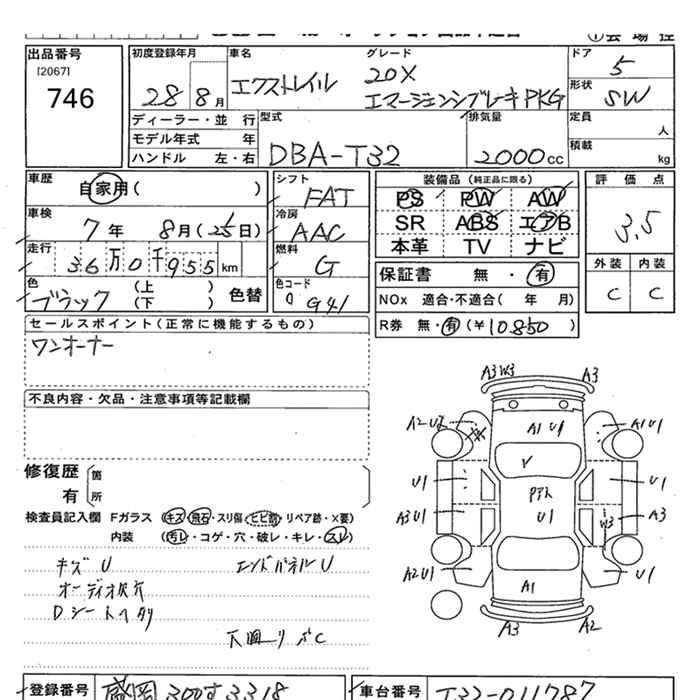 出品番号
[2067]
746
初度登録年月
28 8月
車名
エクストレイル
グレード
20X
エマージェンシブレーキPKG
ドア
5
形状
SW
ディーラー・並 行
モデル年式 年
ハンドル 左・右
型式
DBA-T32
排気量
2000cc
定員
人
積載
kg
車歴
自家用( )
車検
7年 8月(25日)
走行
36万0千955km
色
ブラック
(上 )
(下 )
色替
シフト
FAT
冷房
AAC
燃料
G
色コード
G41
装備品(純正品に限る)
PS PW AW
SR ABS エアB
本革 TV ナビ
保証書 無・有
NOx 適合・不適合( 年 月)
R券 無・有(¥10850)
評価点
3.5
外装 内装
C C
セールスポイント(正常に機能するもの)
ワンオーナー
不良内容・欠品・注意事項等記載欄
修復歴
有
箇
所
検査員記入欄 Fガラス(キズ・飛石・スリ傷・ヒビ割・リペア跡・X要)
内装 (汚レ・コゲ・穴・破レ・キレ・スレ)
キズ U エンドパネルU
オーディオ
Dシートヘタリ
下回り C
A3 W3 A3
A1 U1
A1U1
U1 V U1
U1
A3U1 W3 A3
A2U1 U1
A1
A3 A2
登録番号
盛岡 300す3318
車台番号
T32-011787